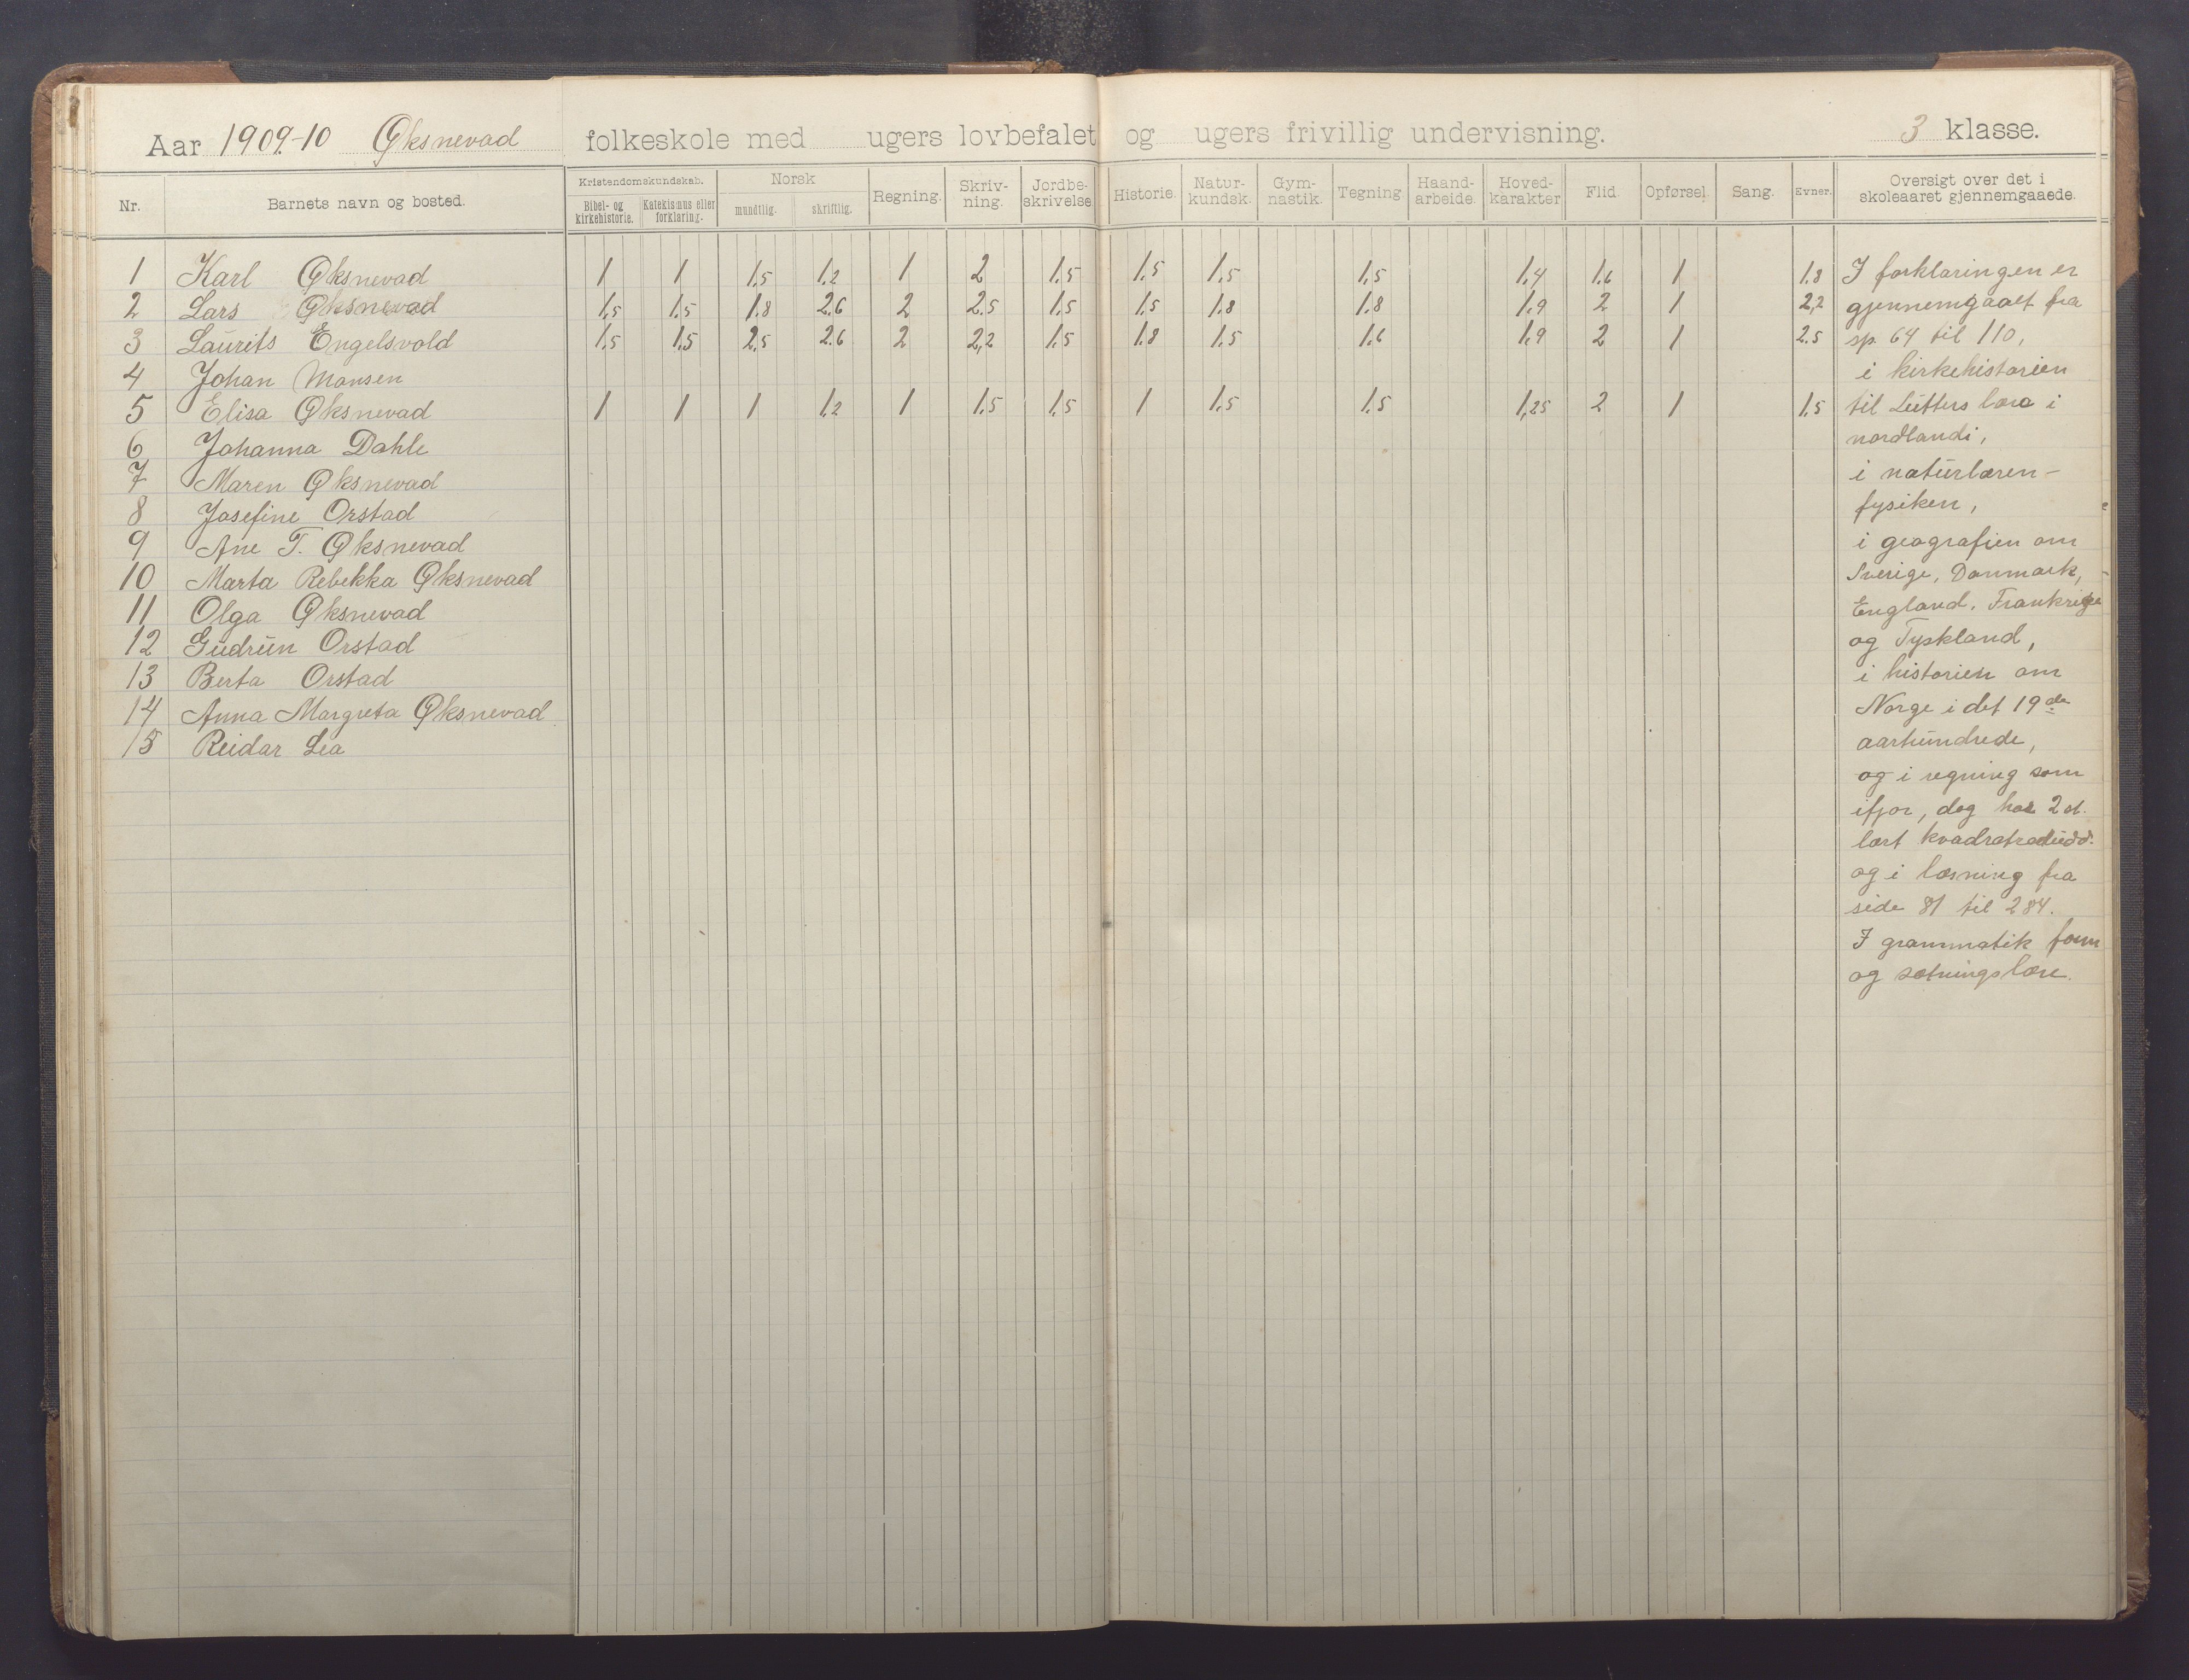 Aar 1909-10 Øksnevad folkeskole med ugers lovbefalet og ugers frivillig undervisning. 3 klasse.
Nr. Barnets navn og bosted. Kristendomskundskab. Bibel- og kirkehistorie. Katekismus eller forklaring. Norsk mundtlig. skriftlig. Regning. Skriv-ning. Jordbe-skrivelse. Historie. Natur-kundsk. Gym-nastik. Tegning Haand-arbeide. Hoved-karakter Flid. Opførsel. Sang. Evner. Oversigt over det i skoleaaret gjennemgaaede.
1 Karl Øksnevad 1 1 1,5 1,2 1 2 1,5 1,5 1,5 1,5 1,4 1,6 1 1,8
2 Lars Øksnevad 1,5 1,5 1,8 2,6 2 2,5 1,5 1,5 1,8 1,8 1,9 2 1 2,2
3 Laurits Engelsvold 1,5 1,5 2,5 2,6 2 2,2 1,5 1,8 1,5 1,6 1,9 2 1 2,5
4 Johan Monsen
5 Elisa Øksnevad 1 1 1 1,2 1 1,5 1,5 1 1,5 1,5 1,25 2 1 1,5
6 Johanna Dahle
7 Maren Øksnevad
8 Josefine Orstad
9 Ane T. Øksnevad
10 Marta Rebekka Øksnevad
11 Olga Øksnevad
12 Gudrun Orstad
13 Berta Orstad
14 Anna Margreta Øksnevad
15 Reidar Lea
I forklaringen er
gjennemgaaet fra
sp. 64 til 110,
i kirkehistorien
til Lutters lære i
nordlandi,
i naturlæren -
fysiken,
i geografien om
Sverige, Danmark,
England, Frankrige
og Tyskland,
i historien om
Norge i det 19de
aarhundrede,
og i regning som
ifjor, dog har 2 d.
lært kvadratrodudd.
og i læsning fra
side 81 til 284.
I grammatik form
og sætningslære.